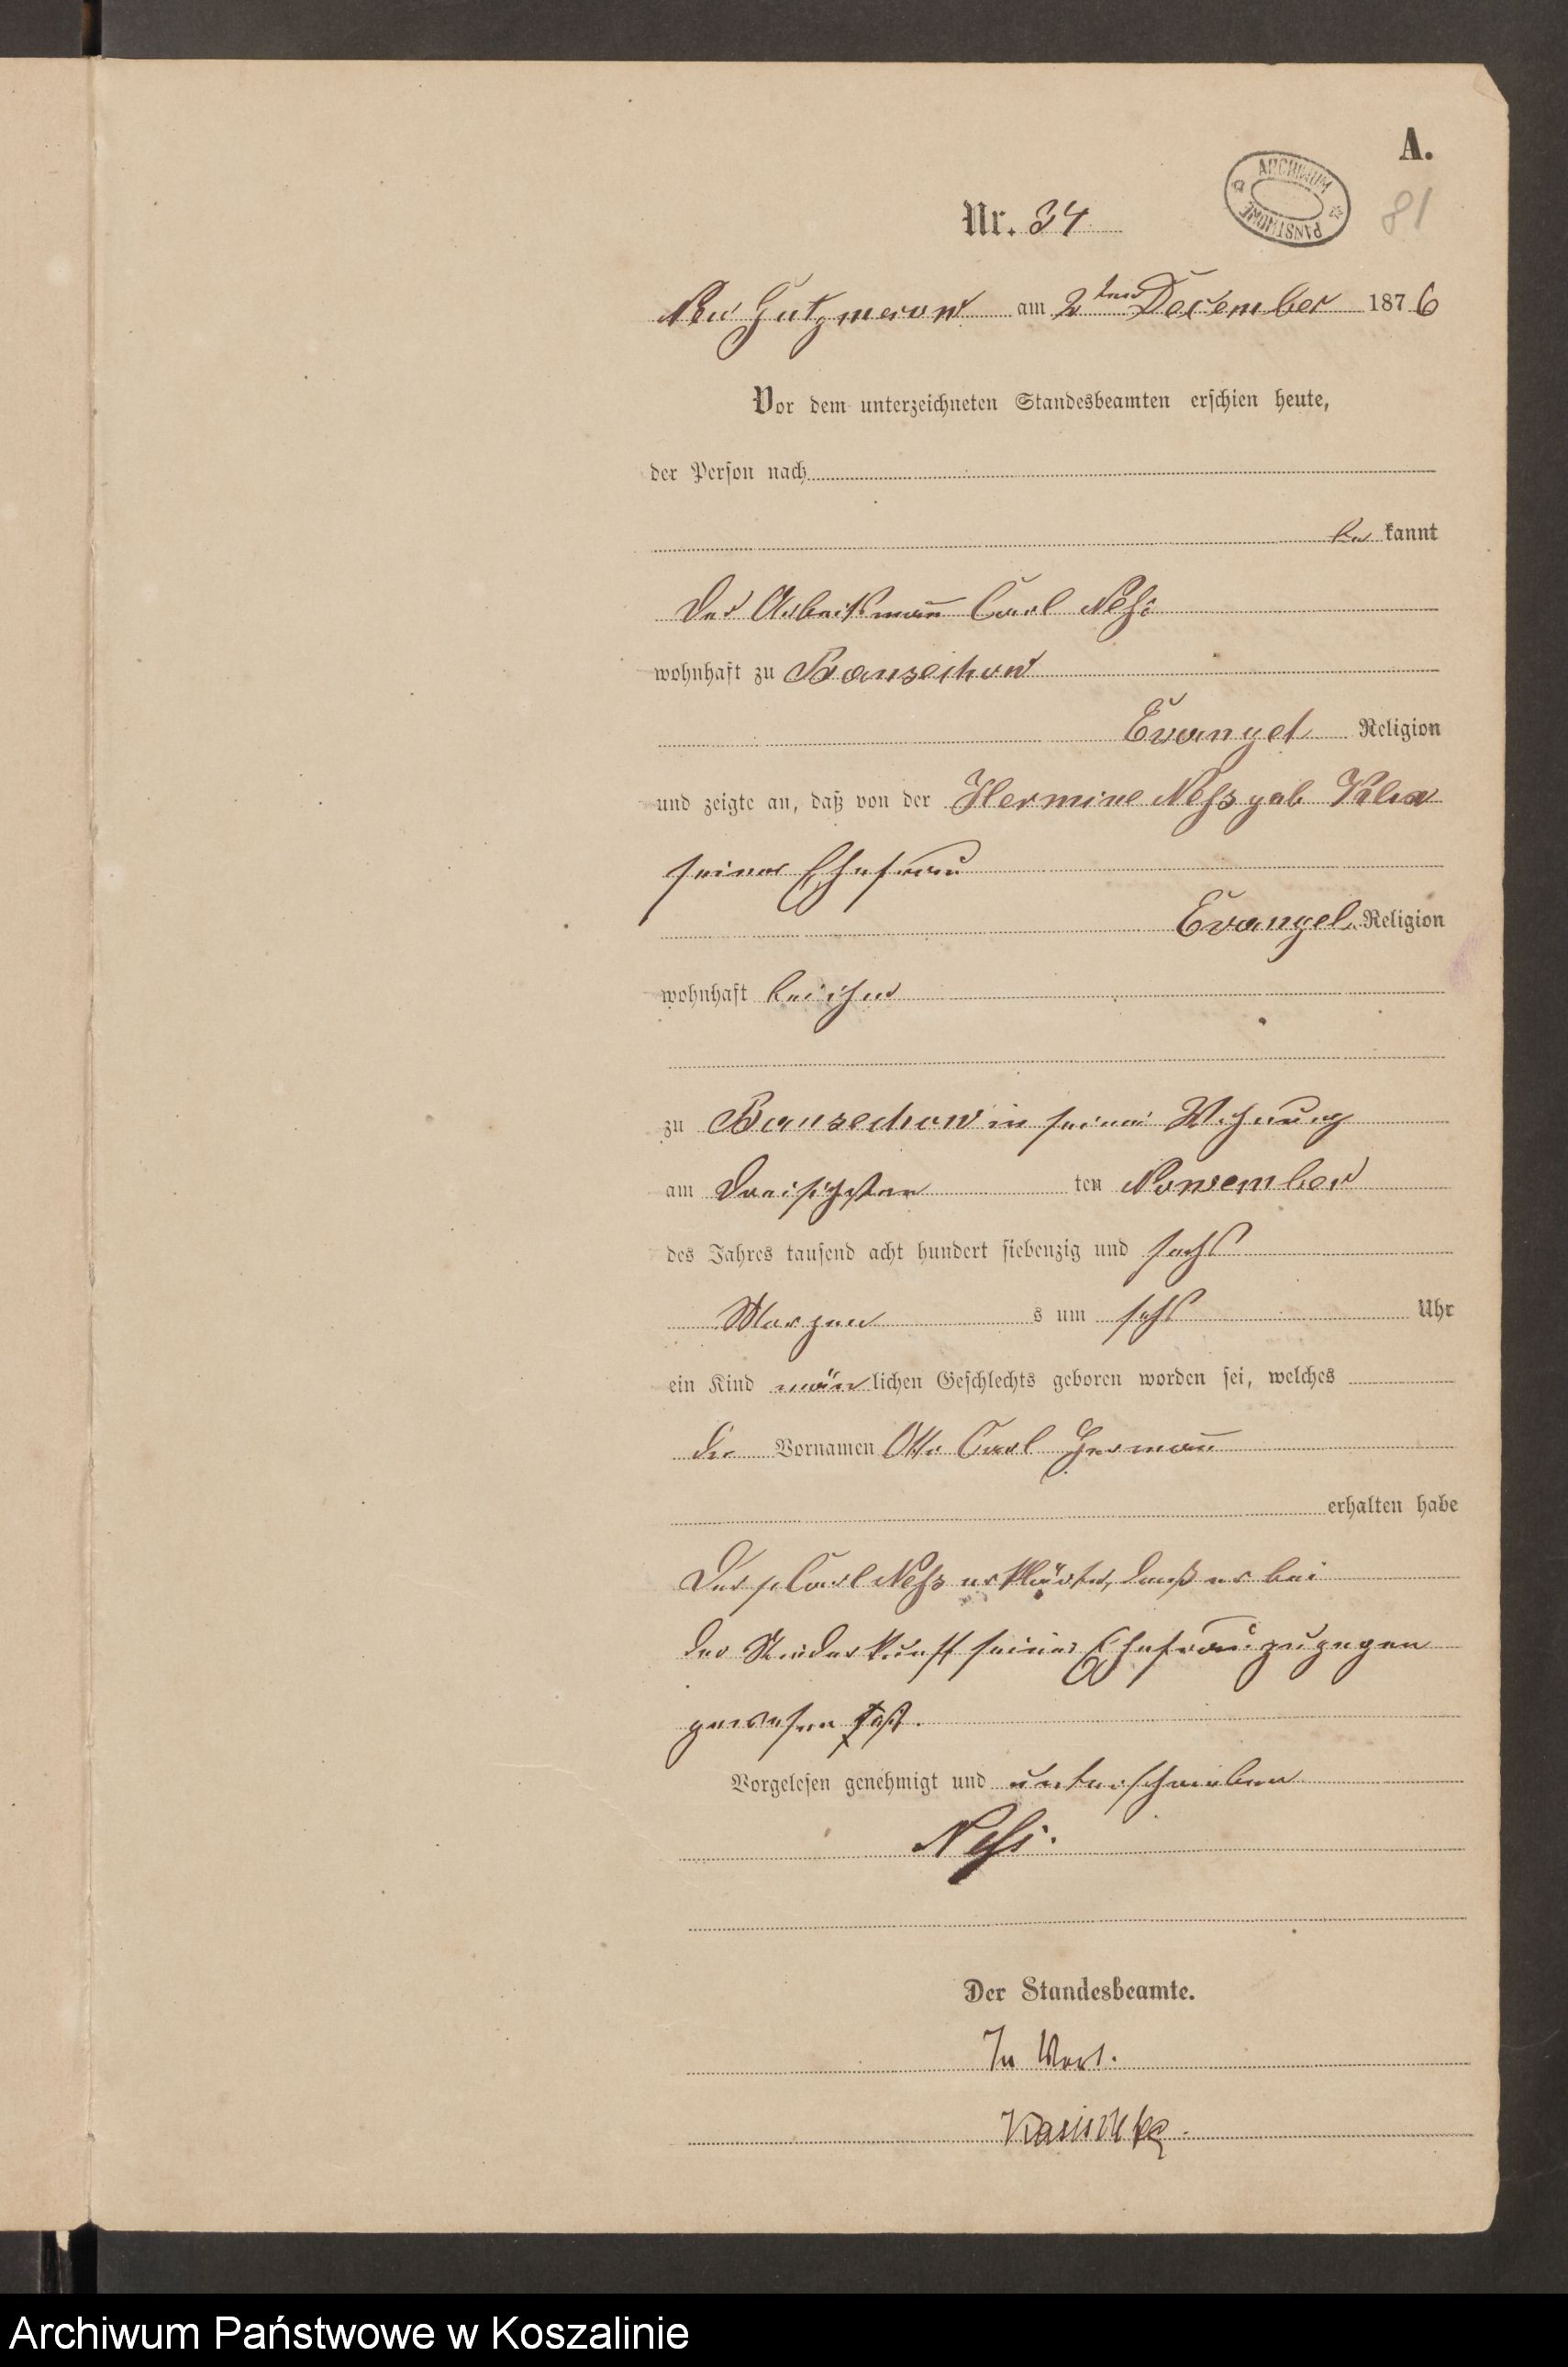 A.
ARCHIWUM PAŃSTWOWE
81
Nr. 34
Neu Gutzmerow am 2ten December 1876
Vor dem unterzeichneten Standesbeamten erschien heute,
der Person nach
be kannt
der Arbeitsmañ Carl Neſs
wohnhaft zu Banseckow
Evangel Religion
und zeigte an, daß von der Hermine Neſs geb
seiner Ehefrau
Evangel. Religion
wohnhaft bei ihm
zu Bansechow in seiner Wohnung
am dreisigsten ten November
des Jahres tausend acht hundert siebenzig und sechs
Morgen s um sechs Uhr
ein Kind män̄ lichen Geschlechts geboren worden sei, welches
die Vornamen Otto Carl Hermañ
erhalten habe
Der p. Carl Neſs erklärte, daß er bei
der Niederkunft seiner Ehefrau zugegen
gewesen ist.
Vorgelesen genehmigt und unterschrieben
Neſs.
Der Standesbeamte.
In Vert.
Archiwum Państwowe w Koszalinie